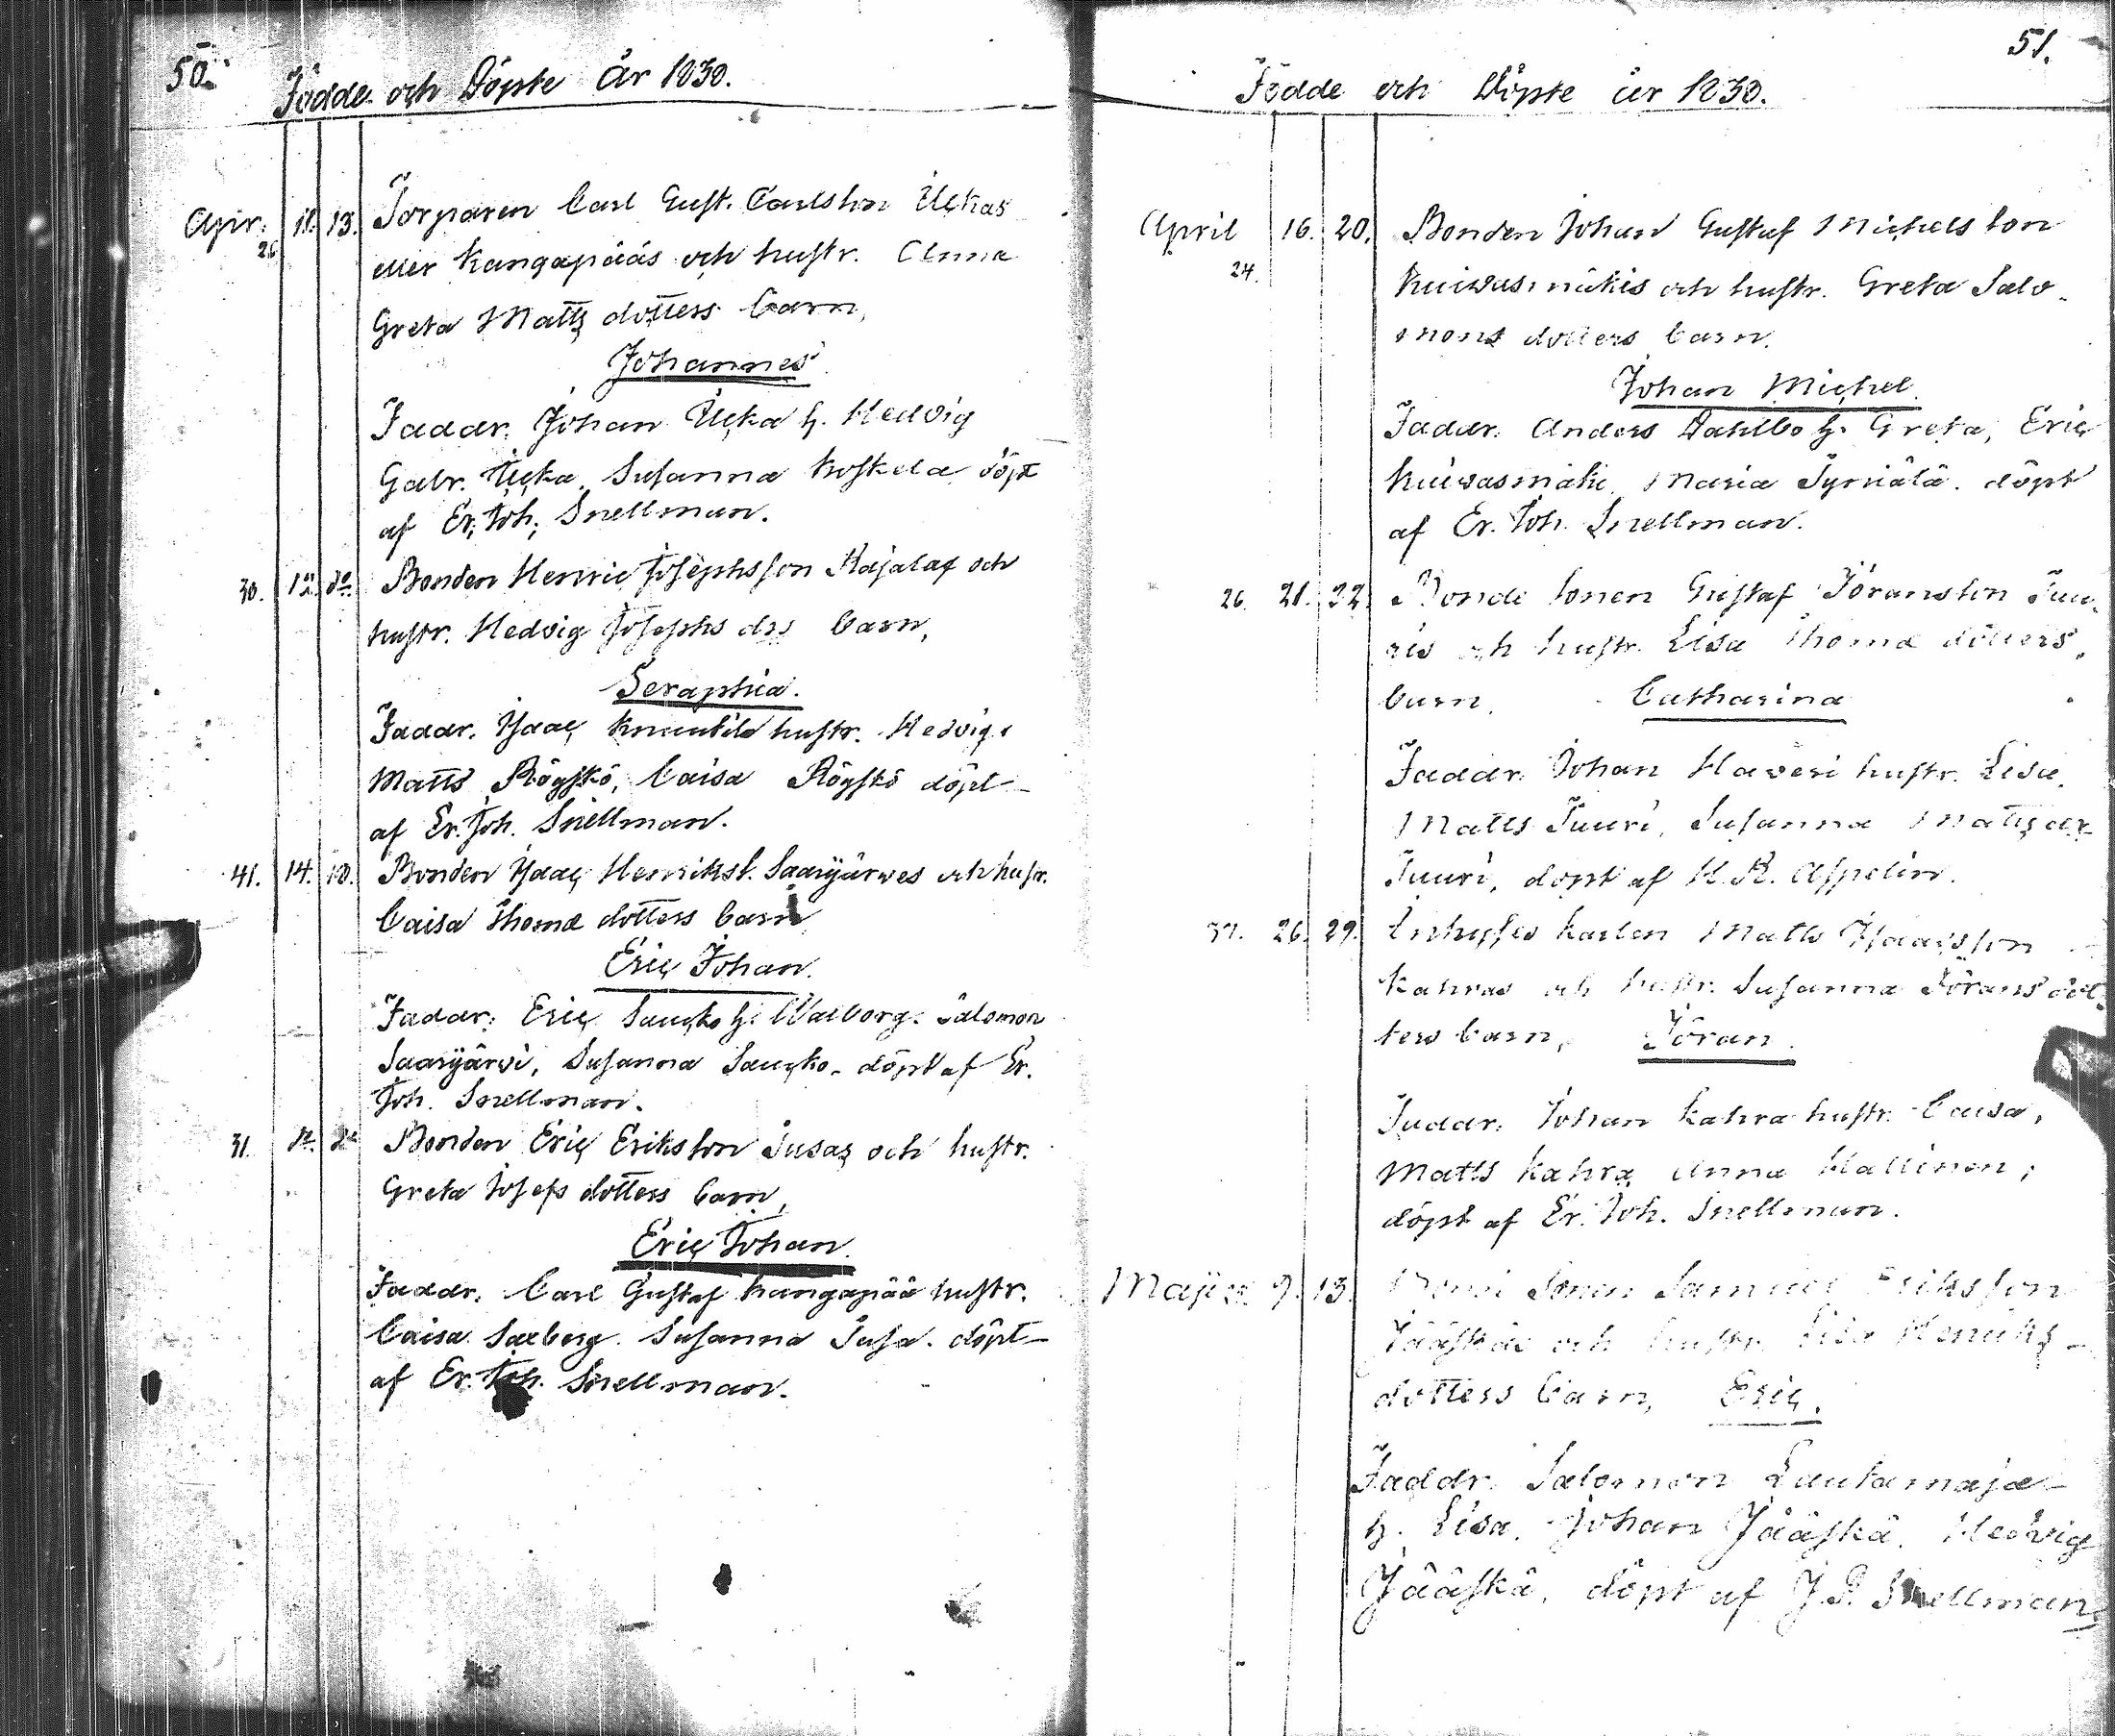 50.
Födde och Döpte År 1830.
Apr. 11. 13. Torparen Carl Gust. Carlsson Ulckas
26 eller Kangapääs och hustr. Anna
Greta Matts dotters barn,
Johannes
Faddr. Johan Ulcka h. Hedvig
Gabr. Ulcka, Susanna Koskela döpt
af Er. Joh. Snellman.
30. 12. do Bonden Henric Josephsson Rajalas och
hustr. Hedvig Josephs drs barn,
Seraphia.
Faddr. Isaac hustr. Hedvig
Matts Rögskö, Caisa Rögskö döpt
af Er. Joh. Snellman.
41. 14. 18. Bonden Isaac Henrikss. Saarijärwes och hustr.
Caisa Thomæ dotters barn
Eric Johan.
Faddr: Eric Saucko h. Walborg. Salomon
Saarijärwi, Susanna Saucko. döpt af Er.
Joh. Snellman.
31. do do Bonden Eric Eriksson Susas och hustr.
Greta Josefs dotters barn,
Eric Johan.
Faddr. Carl Gustaf Kangapää hustr.
Caisa Saxberg. Susanna Susa. döpt
af Er. Joh. Snellman.
51.
Födde och Döpte år 1830.
April 16. 20. Bonden Johan Gustaf Michels son
24. Kuiwasmäkis och hustr. Greta Salo-
mons dotters barn.
Johan Michel.
Faddr. Anders Dahlbo h. Greta, Eric
Kuiwasmäki, Maria Syrjälä. döpt
af Er. Joh. Snellman.
26. 21. 22. Bonde sonen Gustaf Jöransson Juu-
ris och hustr. Lisa Thomæ dotters
barn. Catharina
Faddr. Johan Haweri hustr. Lisa.
Matts Juuri, Susanna Matts dr
Juuri, döpt af H. R. Aspelin.
37. 26. 29. Inhyses karlen Matts Isaacsson
Kahras och hustr. Susanna Jörans dot-
ters barn, Jöran.
Faddr. Johan Kahra hustr. Caisa,
Matts Kahra, Anna Hallinen;
döpt af Er. Joh. Snellman.
Maji 9. 13. Bond Sonen Samuel Eriksson
Jääskäs och hustr. Lisa Henriks
dotters barn, Eric.
Faddr. Salomon Lautamaja
h. Lisa. Johan Jääskä. Hedvig
Jääskä, döpt af J. P. Snellman